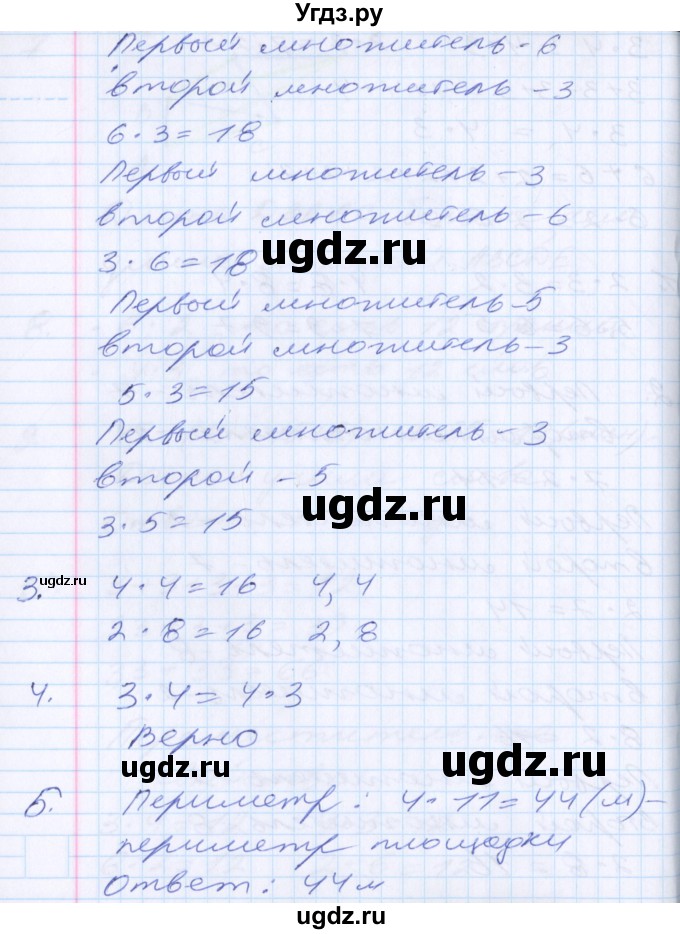 Угдз.ру
Первый множитель - 6
второй множитель - 3
6 · 3 = 18
Первый множитель - 3
второй множитель - 6
ugdz.ru
3 · 6 = 18
Первый множитель - 5
второй множитель - 3
5 · 3 = 15
Первый множитель - 3
второй - 5
ugdz.ru
3 · 5 = 15
ugdz.ru
3. 4 · 4 = 16 4, 4
2 · 8 = 16 2, 8
4. 3 · 4 = 4 · 3
Верно
ugdz.ru ugdz.ru
5. Периметр: 4 · 11 = 44 (м) -
периметр площадки
Ответ: 44 м
ugdz.ru
ugdz.ru